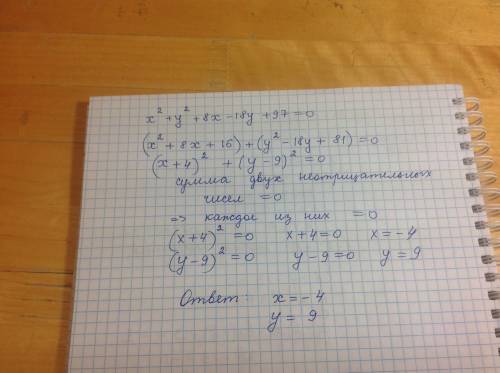 x² + y² + 8x - 18y + 97 = 0
(x² + 8x + 16) + (y² - 18y + 81) = 0
(x + 4)² + (y - 9)² = 0
сумма двух неотрицательных
чисел = 0
=> каждое из них = 0
(x + 4)² = 0 x + 4 = 0 x = -4
(y - 9)² = 0 y - 9 = 0 y = 9
Ответ: x = -4
y = 9